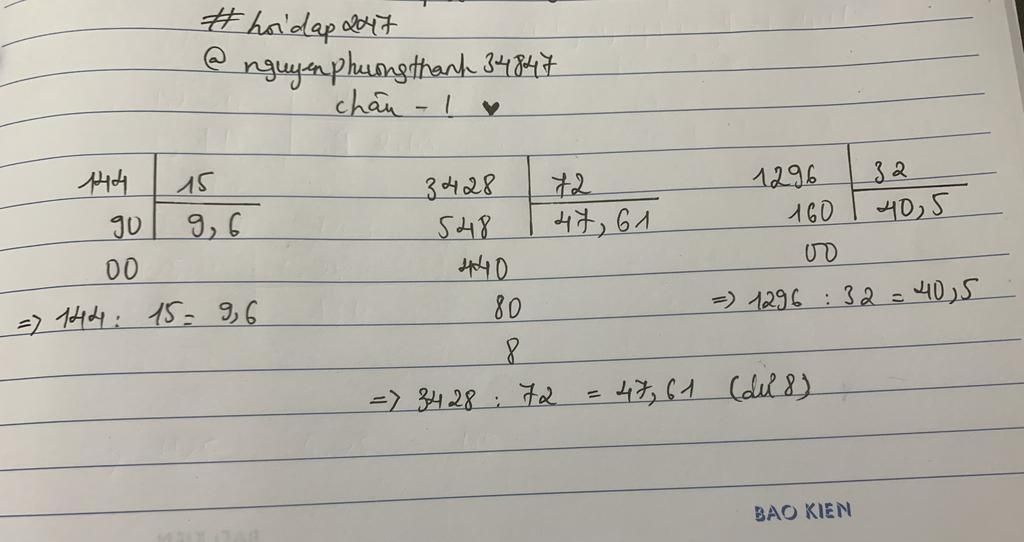 #hoidap247
@nguyenphuongthanh34847
chần - ! ♥
144 15
90 9,6
00
=> 144 : 15 = 9,6
3428 72
548 47,61
440
80
8
=> 3428 : 72 = 47,61 (dư 8)
1296 32
160 40,5
00
=> 1296 : 32 = 40,5
BAO KIEN